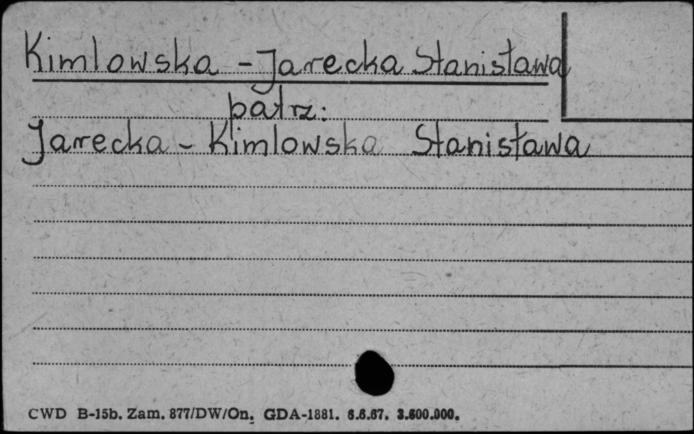 Kimlowska - Jarecka Stanisława
patrz:
Jarecka - Kimlowska Stanisława
CWD B-15b. Zam. 877/DW/On. GDA-1881. 6.6.67. 3.600.000.